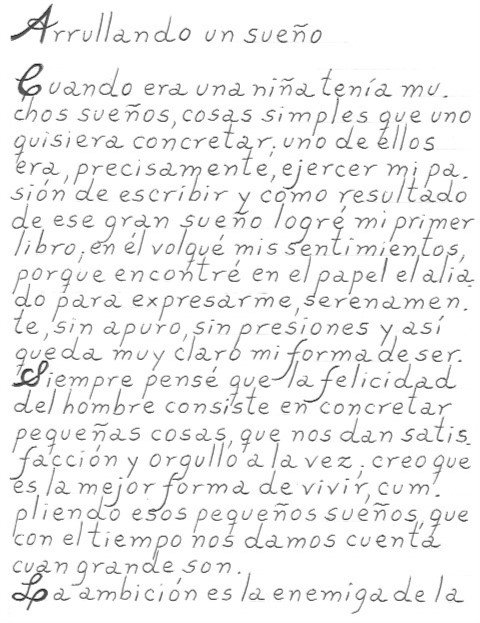 Arrullando un sueño
Cuando era una niña tenía mu-
chos sueños, cosas simples que uno
quisiera concretar; uno de ellos
era, precisamente, ejercer mi pa-
sión de escribir y como resultado
de ese gran sueño logré mi primer
libro, en él volqué mis sentimientos,
porque encontré en el papel el alia-
do para expresarme, serenamen-
te, sin apuro, sin presiones y así
queda muy claro mi forma de ser.
Siempre pensé que la felicidad
del hombre consiste en concretar
pequeñas cosas, que nos dan satis-
facción y orgullo a la vez; creo que
es la mejor forma de vivir, cum-
pliendo esos pequeños sueños, que
con el tiempo nos damos cuenta
cuan grande son.
La ambición es la enemiga de la